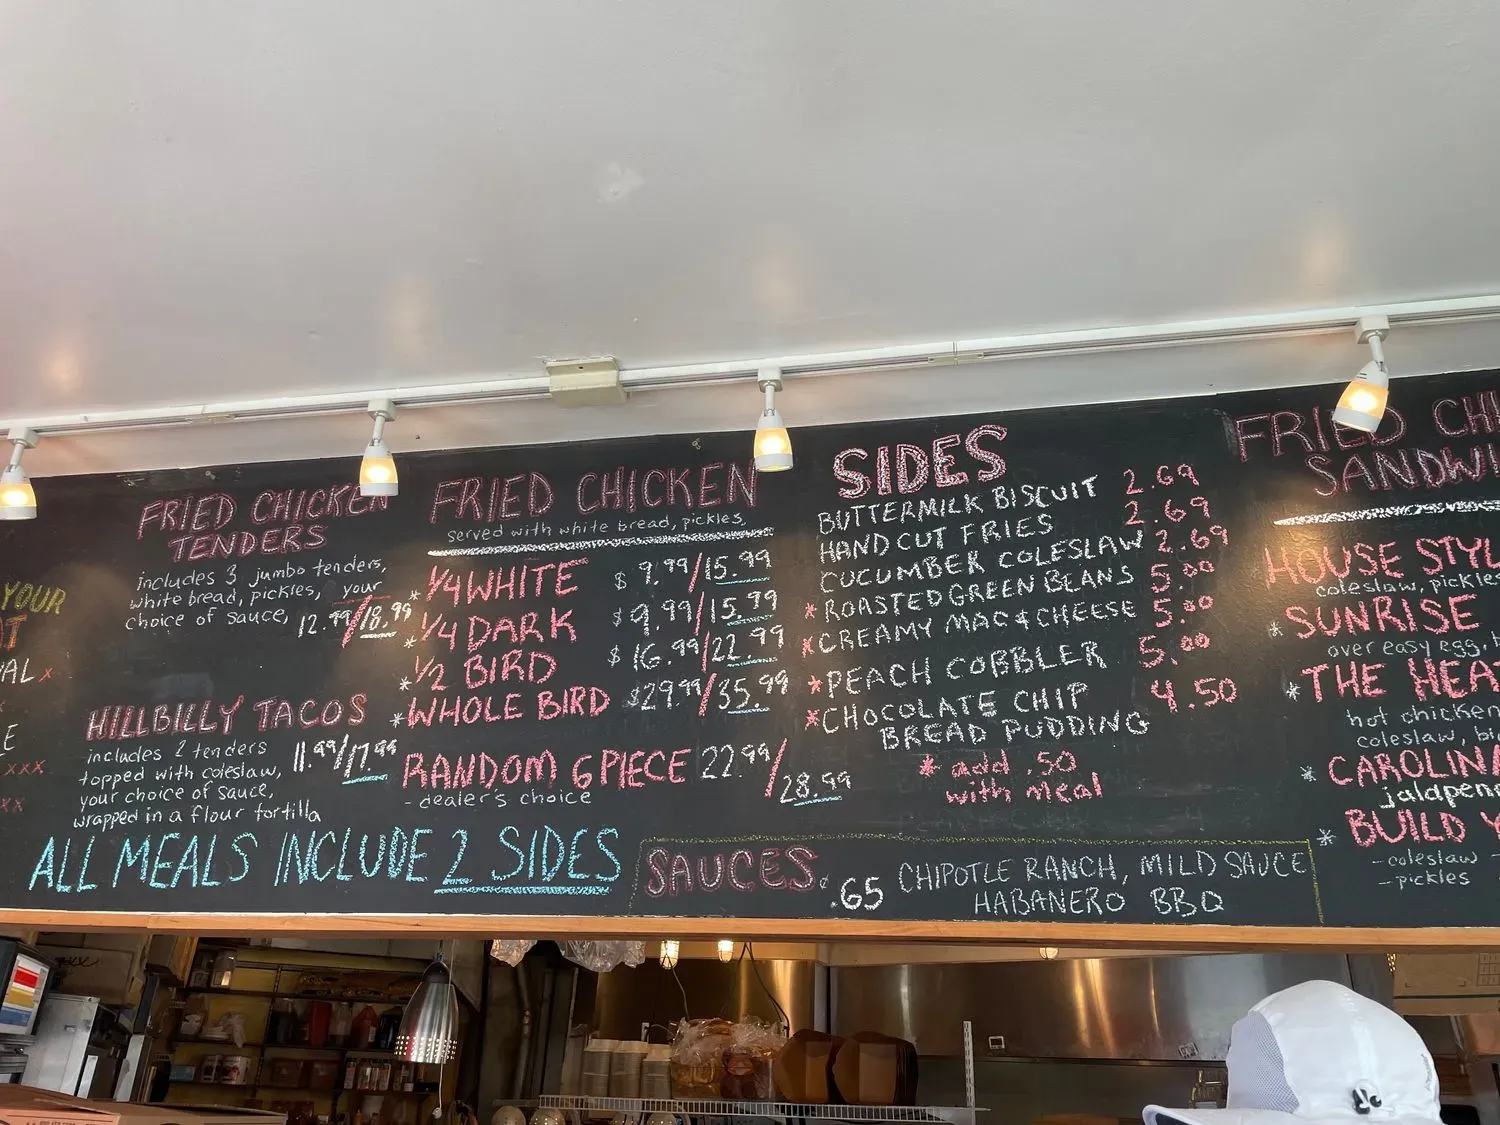 YOUR
FRIED CHICKEN
TENDERS
includes 3 jumbo tenders,
white bread, pickles, your
choice of sauce, 12.99/18.99
HILLBILLY TACOS
includes 2 tenders 11.99/17.99
topped with coleslaw,
your choice of sauce,
wrapped in a flour tortilla
ALL MEALS INCLUDE 2 SIDES
FRIED CHICKEN
served with white bread, pickles
* 1/4 WHITE $ 9.99/15.99
* 1/4 DARK $ 9.99/15.99
* 1/2 BIRD $ 16.99/22.99
* WHOLE BIRD $29.99/35.99
RANDOM 6 PIECE 22.99/28.99
- dealer's choice
SIDES
BUTTERMILK BISCUIT 2.69
HAND CUT FRIES 2.69
CUCUMBER COLESLAW 2.69
* ROASTED GREEN BEANS 5.00
* CREAMY MAC & CHEESE 5.00
* PEACH COBBLER 5.00
* CHOCOLATE CHIP 4.50
BREAD PUDDING
* add .50
with meal
SAUCES .65 CHIPOTLE RANCH, MILD SAUCE
HABANERO BBQ
FRIED CH
SANDWI
HOUSE STYL
coleslaw, pickles
* SUNRISE
over easy egg,
* THE HEA
hot chicken
coleslaw,
* CAROLINA
jalapeno
* BUILD Y
- coleslaw -
- pickles